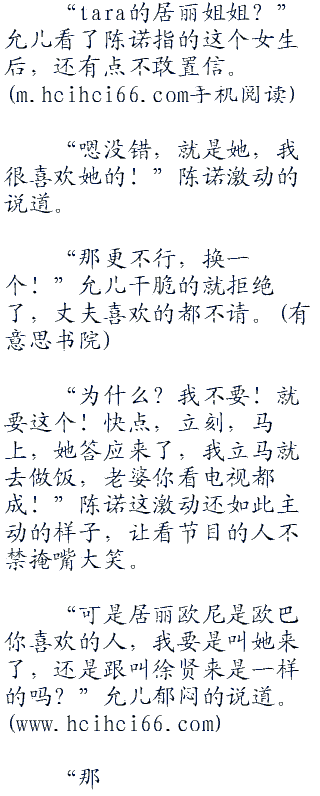 “tara的居丽姐姐？”
允儿看了陈诺指的这个女生
后，还有点不敢置信。
(m.hcihci66.com手机阅读)
“嗯没错，就是她，我
很喜欢她的！”陈诺激动的
说道。
“那更不行，换一
个！”允儿干脆的就拒绝
了，丈夫喜欢的都不请。(有
意思书院)
“为什么？我不要！就
要这个！快点，立刻，马
上，她答应来了，我立马就
去做饭，老婆你看电视都
成！”陈诺这激动还如此主
动的样子，让看节目的人不
禁掩嘴大笑。
“可是居丽欧尼是欧巴
你喜欢的人，我要是叫她来
了，还是跟叫徐贤来是一样
的吗？”允儿郁闷的说道。
(www.hcihci66.com)
“那